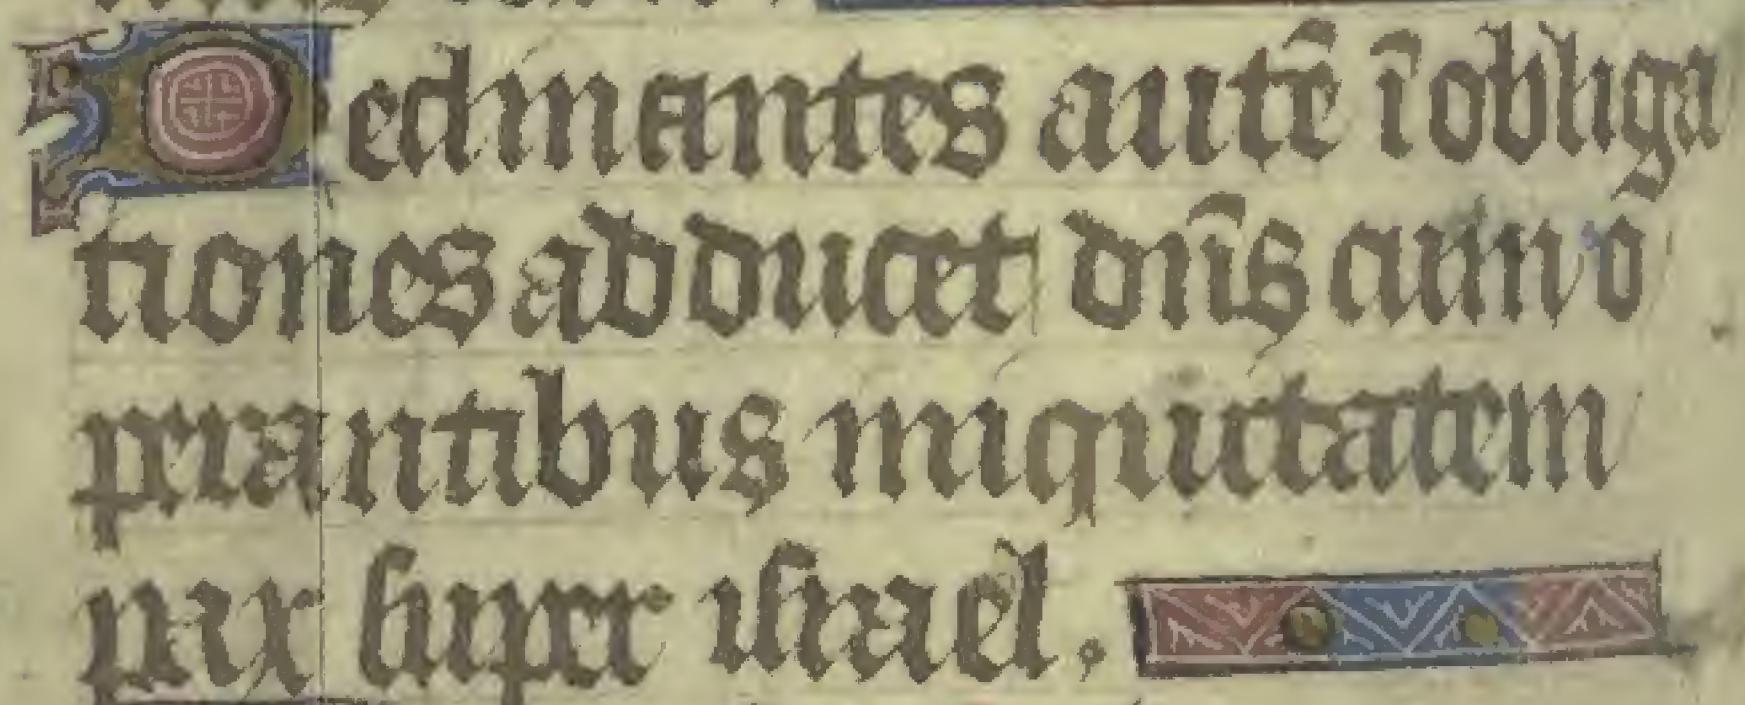 Declinantes autē ī obliga
tiones adducet dn̄s cum o
perantibus iniquitatem
pax super israel.